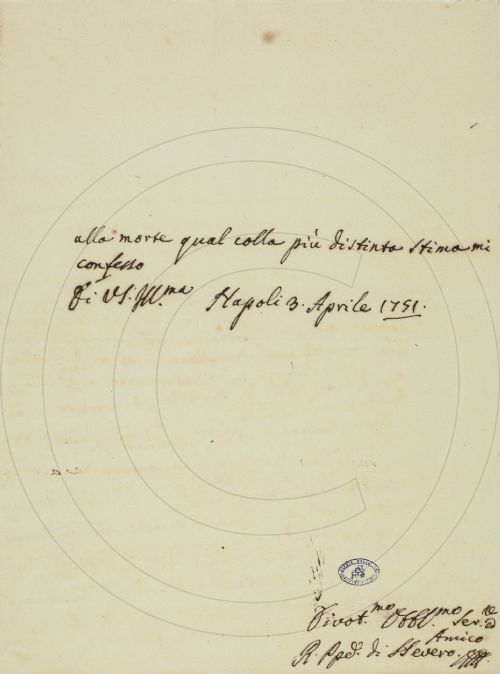 alla morte qual colla più distinta stima mi
confesso
Di VS. Ill.ma Napoli 3. Aprile 1751.
Divot.mo Obbl.mo Ser.re
Amico
di SSevero.